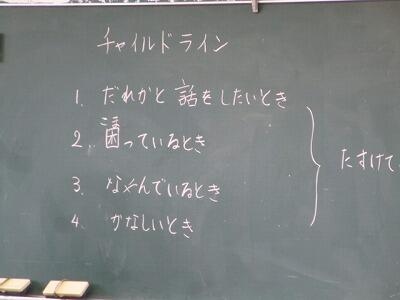 チャイルドライン
1. だれかと話をしたいとき
こま
2. 困っているとき
3. なやんでいるとき
4. かなしいとき
たすけて